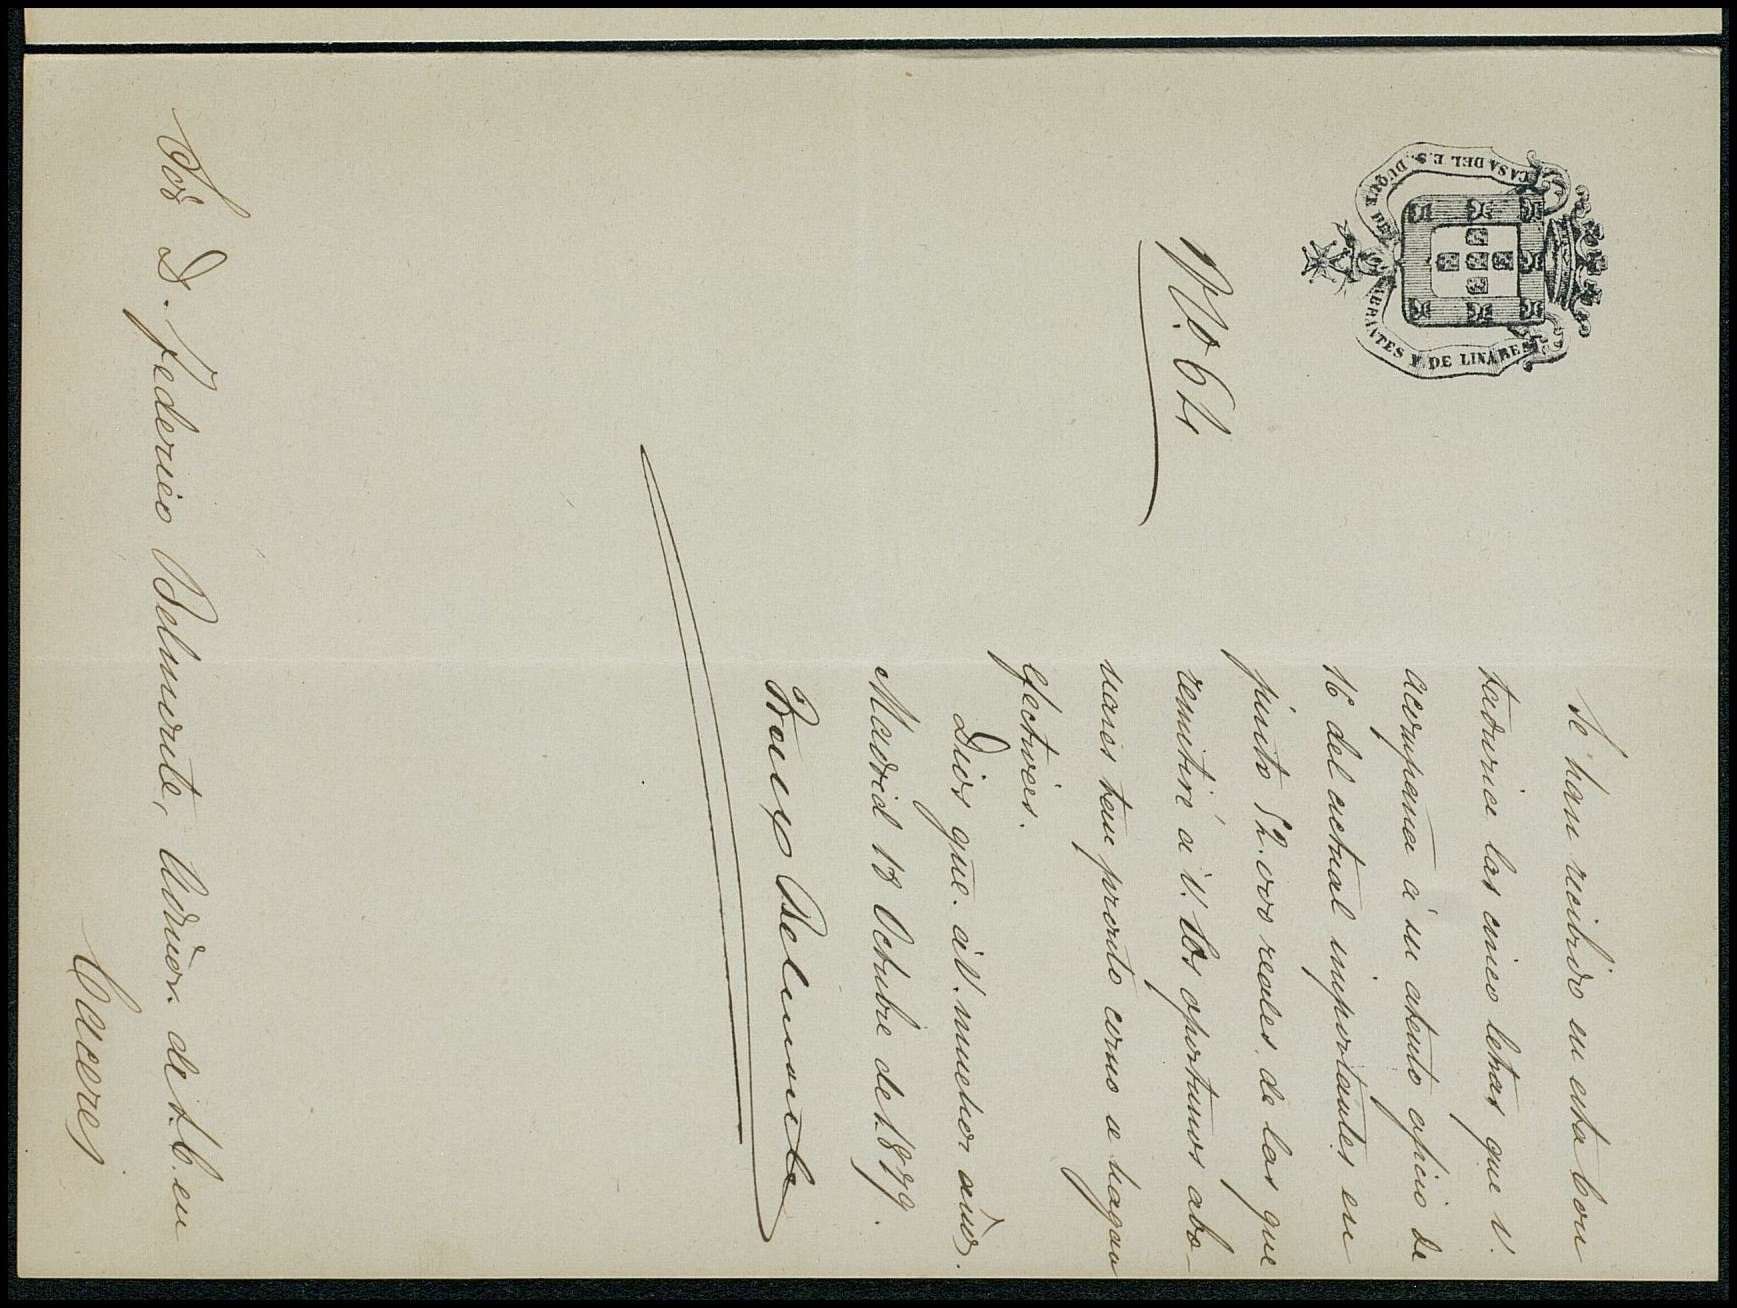 CASA DEL E. S. DUQUE DE ABRANTES Y DE LINARES
N.º 64
Se han recibido en esta Con
taduria las cinco letras que V.
acompaña á su atento oficio de
16 del actual importantes en
junto 52.000 reales, de las que
remitiré á V. los oportunos abo-
nares tan pronto como se hagan
efectivas.
Dios gue. á V. muchos años.
Madrid 18 Octubre de 1.879.
Belmonte
Sor. D. Federico Belmonte, Admor. de S.E. en
Caceres